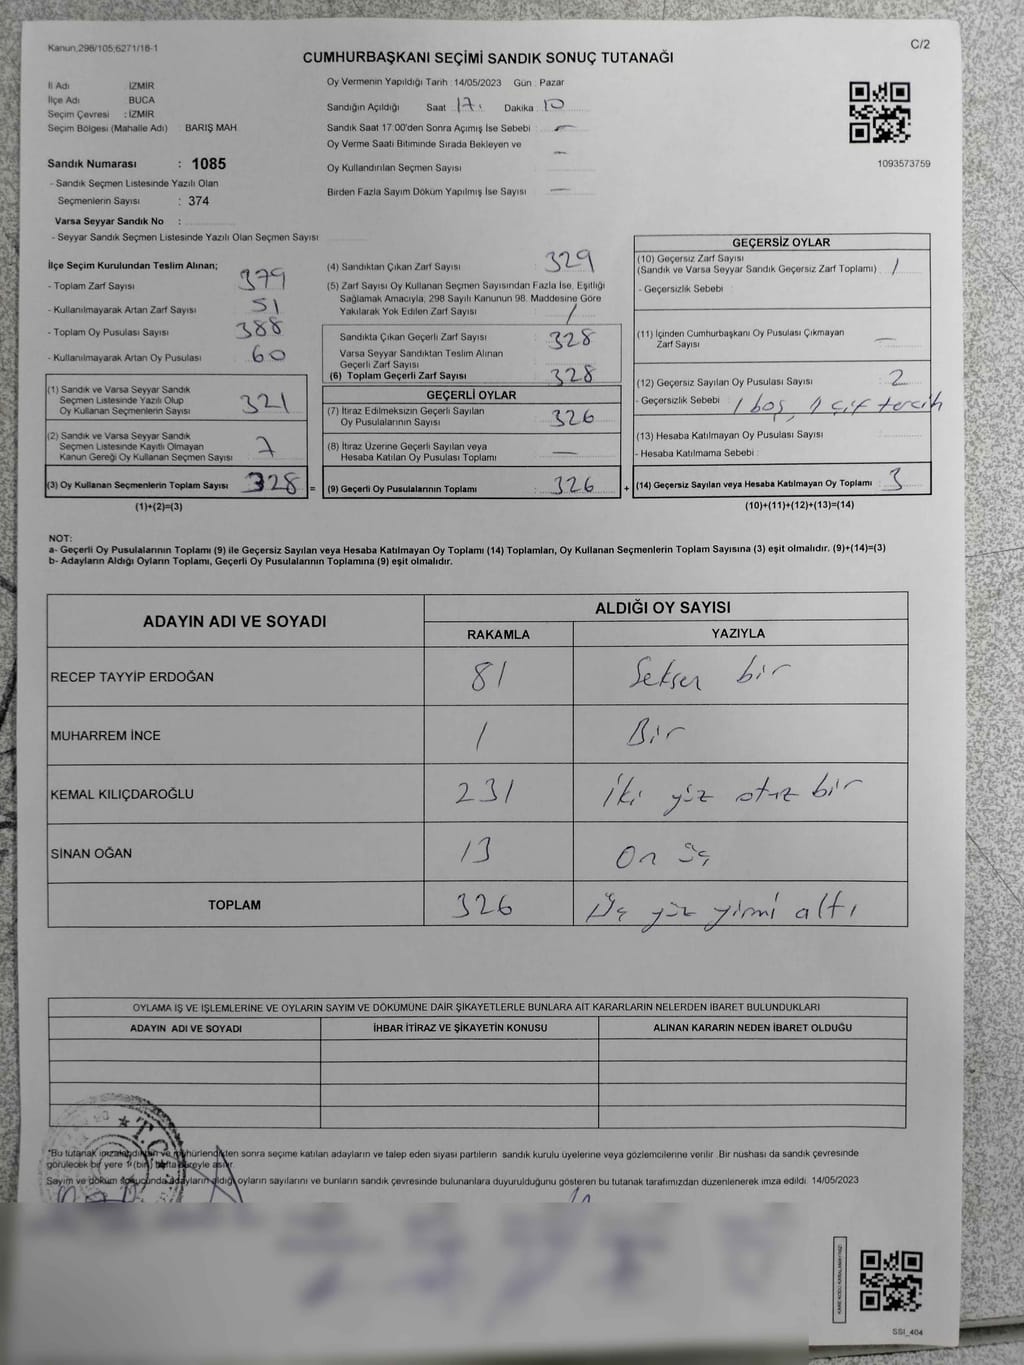 Kanun,298/105;6271/16-1
C/2
CUMHURBAŞKANI SEÇİMİ SANDIK SONUÇ TUTANAĞI
İl Adı İZMİR
İlçe Adı BUCA
Seçim Çevresi : İZMİR
Seçim Bölgesi (Mahalle Adı) : BARIŞ MAH
Sandık Numarası : 1085
- Sandık Seçmen Listesinde Yazılı Olan
Seçmenlerin Sayısı : 374
Varsa Seyyar Sandık No :
- Seyyar Sandık Seçmen Listesinde Yazılı Olan Seçmen Sayısı
Oy Vermenin Yapıldığı Tarih : 14/05/2023 Gün : Pazar
Sandığın Açıldığı Saat 17. Dakika 10
Sandık Saat 17:00'den Sonra Açımış İse Sebebi : —
Oy Verme Saati Bitiminde Sırada Bekleyen ve
Oy Kullandırılan Seçmen Sayısı —
Birden Fazla Sayım Döküm Yapılmış İse Sayısı —
1093573759
İlçe Seçim Kurulundan Teslim Alınan;
- Toplam Zarf Sayısı : 379
- Kullanılmayarak Artan Zarf Sayısı : 51
- Toplam Oy Pusulası Sayısı : 388
- Kullanılmayarak Artan Oy Pusulası : 60
(1) Sandık ve Varsa Seyyar Sandık
Seçmen Listesinde Yazılı Olup
Oy Kullanan Seçmenlerin Sayısı : 321
(2) Sandık ve Varsa Seyyar Sandık
Seçmen Listesinde Kayıtlı Olmayan
Kanun Gereği Oy Kullanan Seçmen Sayısı : 7
(3) Oy Kullanan Seçmenlerin Toplam Sayısı : 328 =
(1)+(2)=(3)
(4) Sandıktan Çıkan Zarf Sayısı : 329
(5) Zarf Sayısı Oy Kullanan Seçmen Sayısından Fazla İse, Eşitliği
Sağlamak Amacıyla, 298 Sayılı Kanunun 98. Maddesine Göre
Yakılarak Yok Edilen Zarf Sayısı : 1
Sandıkta Çıkan Geçerli Zarf Sayısı : 328
Varsa Seyyar Sandıktan Teslim Alınan
Geçerli Zarf Sayısı
(6) Toplam Geçerli Zarf Sayısı : 328
GEÇERLİ OYLAR
(7) İtiraz Edilmeksizin Geçerli Sayılan
Oy Pusulalarının Sayısı : 326
(8) İtiraz Üzerine Geçerli Sayılan veya
Hesaba Katılan Oy Pusulası Toplamı : —
(9) Geçerli Oy Pusulalarının Toplamı : 326 +
GEÇERSİZ OYLAR
(10) Geçersiz Zarf Sayısı
(Sandık ve Varsa Seyyar Sandık Geçersiz Zarf Toplamı) : 1
- Geçersizlik Sebebi :
(11) İçinden Cumhurbaşkanı Oy Pusulası Çıkmayan
Zarf Sayısı : —
(12) Geçersiz Sayılan Oy Pusulası Sayısı : 2
- Geçersizlik Sebebi : 1 boş, 1 çift tercih
(13) Hesaba Katılmayan Oy Pusulası Sayısı :
- Hesaba Katılmama Sebebi :
(14) Geçersiz Sayılan veya Hesaba Katılmayan Oy Toplamı : 3
(10)+(11)+(12)+(13)=(14)
NOT:
a- Geçerli Oy Pusulalarının Toplamı (9) ile Geçersiz Sayılan veya Hesaba Katılmayan Oy Toplamı (14) Toplamları, Oy Kullanan Seçmenlerin Toplam Sayısına (3) eşit olmalıdır. (9)+(14)=(3)
b- Adayların Aldığı Oyların Toplamı, Geçerli Oy Pusulalarının Toplamına (9) eşit olmalıdır.
ADAYIN ADI VE SOYADI ALDIĞI OY SAYISI
RAKAMLA YAZIYLA
RECEP TAYYİP ERDOĞAN 81 Seksen bir
MUHARREM İNCE 1 Bir
KEMAL KILIÇDAROĞLU 231 İki yüz otuz bir
SİNAN OĞAN 13 On üç
TOPLAM 326 Üç yüz yirmi altı
OYLAMA İŞ VE İŞLEMLERİNE VE OYLARIN SAYIM VE DÖKÜMÜNE DAİR ŞİKAYETLERLE BUNLARA AİT KARARLARIN NELERDEN İBARET BULUNDUKLARI
ADAYIN ADI VE SOYADI İHBAR İTİRAZ VE ŞİKAYETİN KONUSU ALINAN KARARIN NEDEN İBARET OLDUĞU
T.C.
*Bu tutanak imzalandıktan ve mühürlendikten sonra seçime katılan adayların ve talep eden siyasi partilerin sandık kurulu üyelerine veya gözlemcilerine verilir .Bir nüshası da sandık çevresinde
görülecek bir yere 1 (bir) hafta süreyle asılır.
Sayım ve döküm sonucunda adayların aldığı oyların sayılarını ve bunların sandık çevresinde bulunanlara duyurulduğunu gösteren bu tutanak tarafımızdan düzenlenerek imza edildi. 14/05/2023
SSI_404